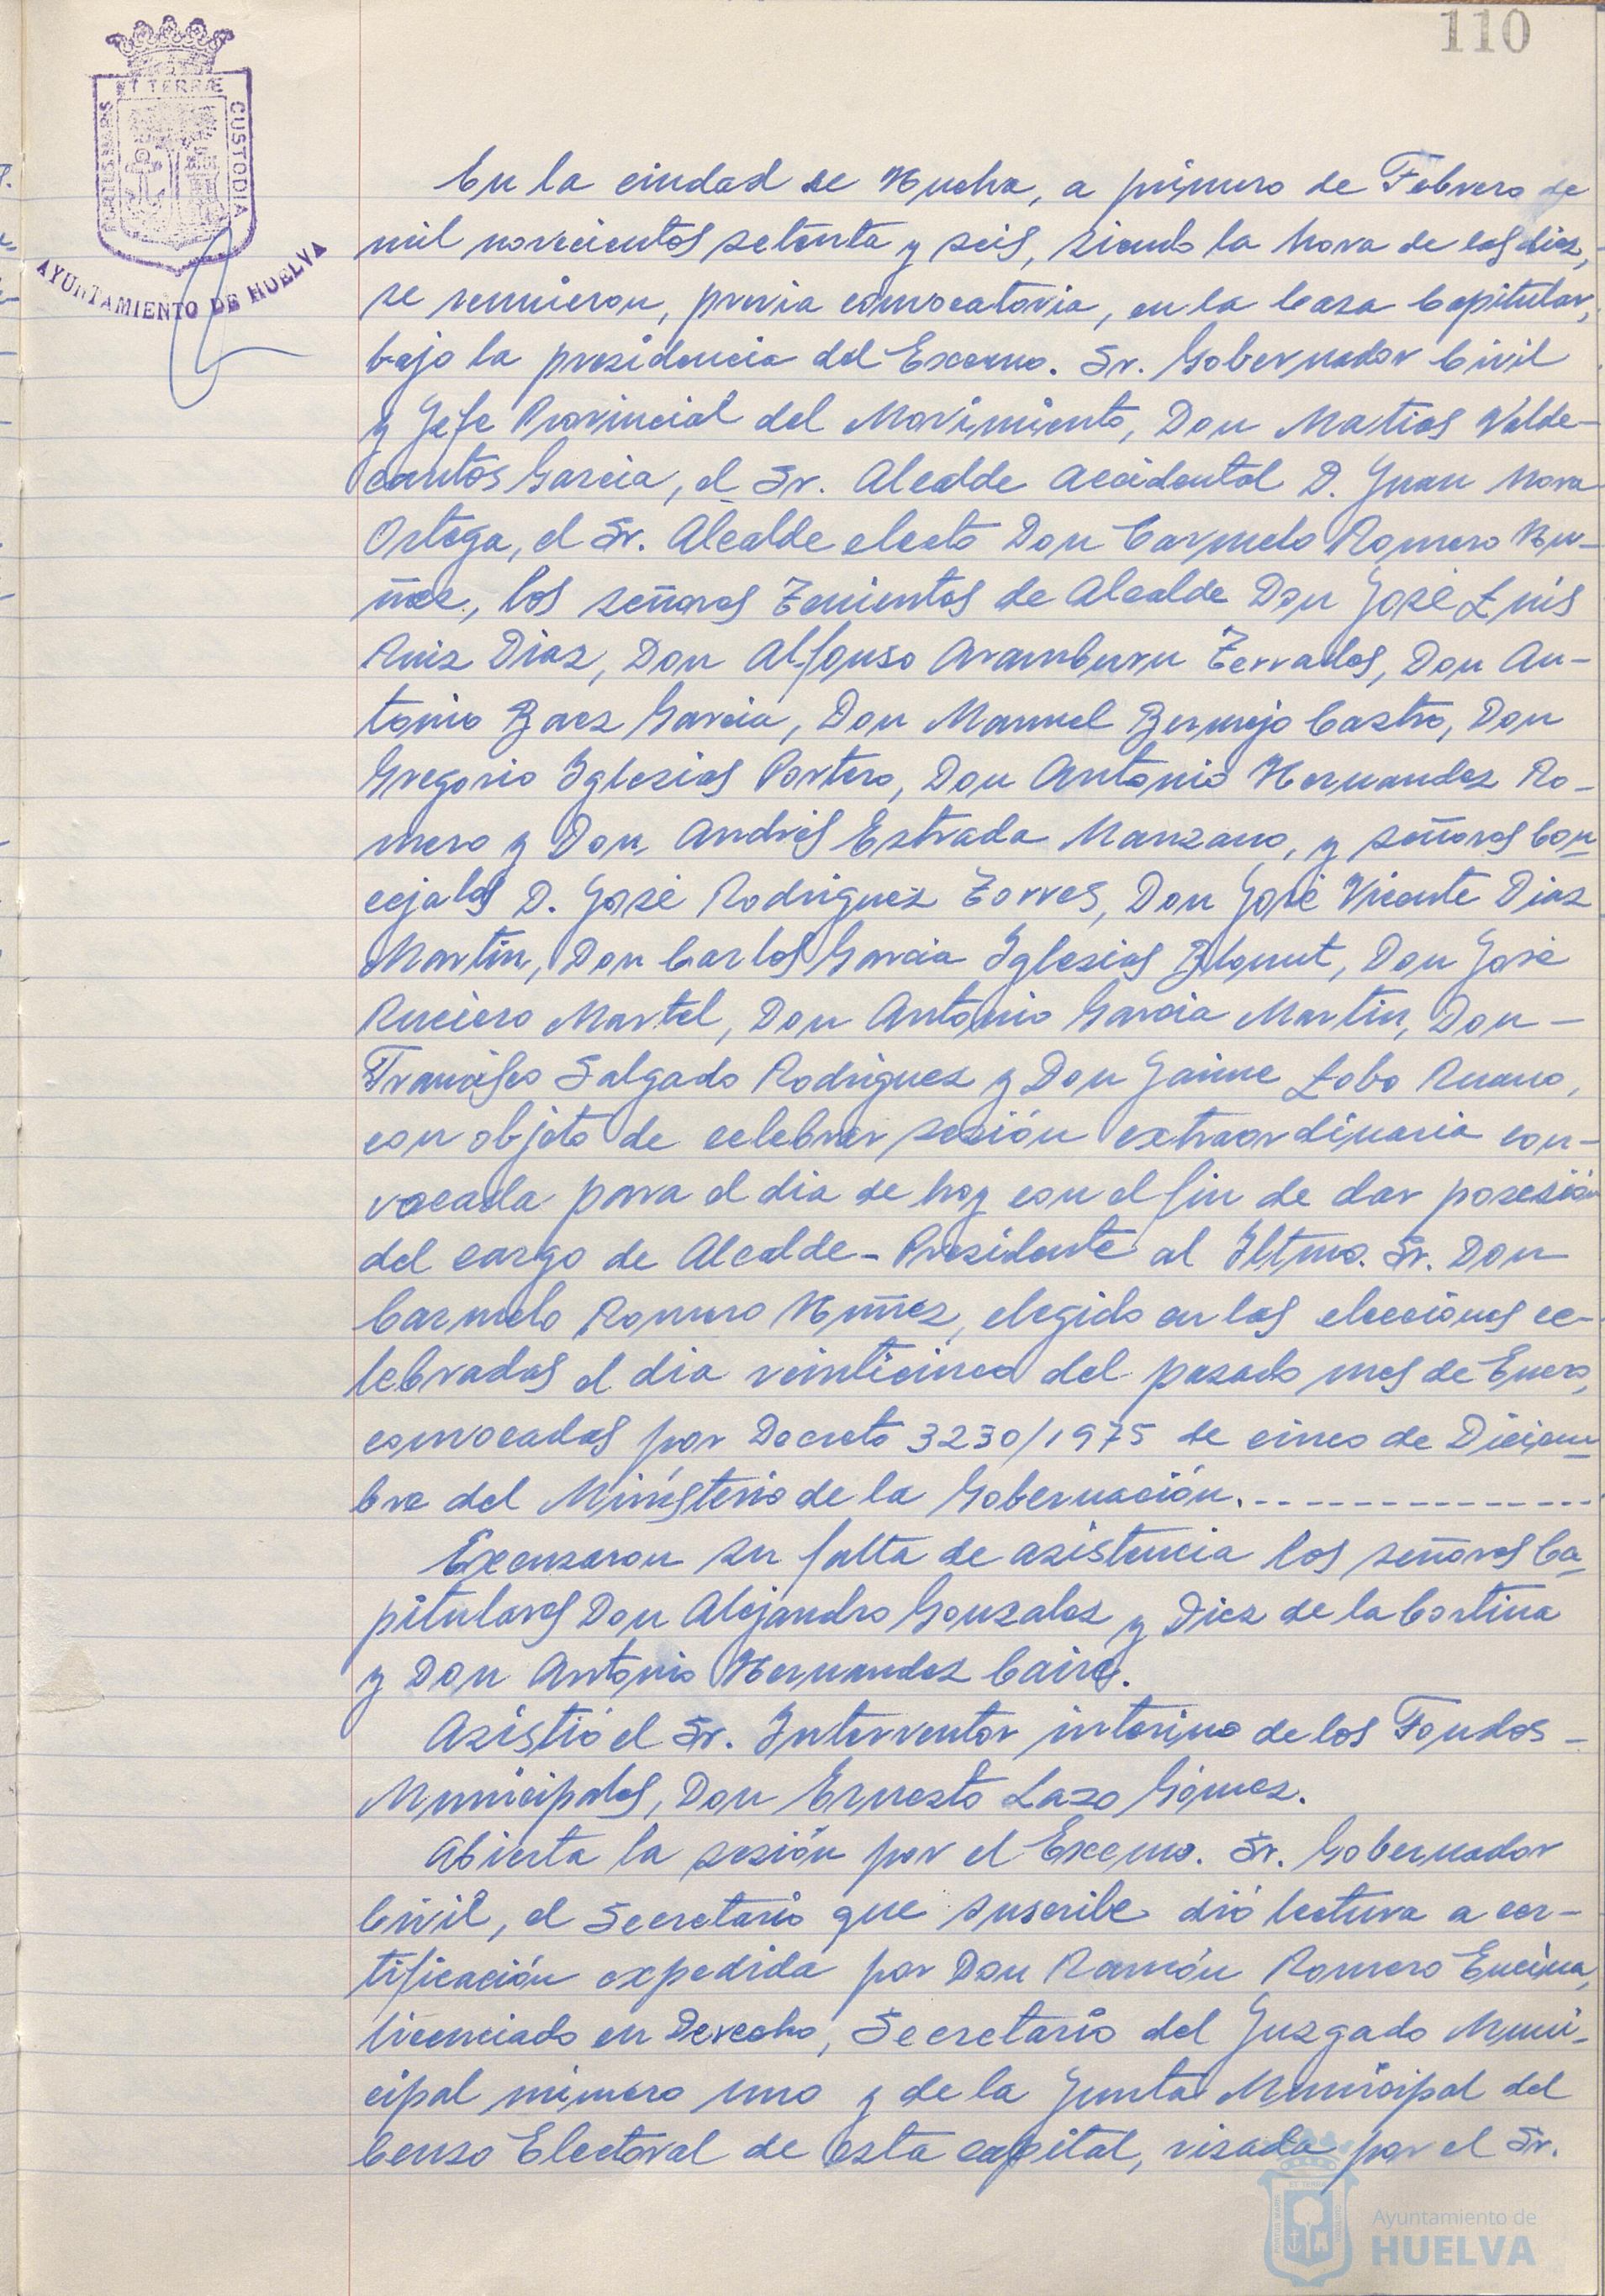 110
ET TERRÆ
PORTUS MARIS
CUSTODIA
AYUNTAMIENTO DE HUELVA
En la ciudad de Huelva, a primero de Febrero de
mil novecientos setenta y seis, siendo la hora de las diez,
se reunieron, previa convocatoria, en la Casa Capitular,
bajo la presidencia del Excemo. Sr. Gobernador Civil
y Jefe Provincial del Movimiento, Don Matias Valde-
cantos Garcia, el Sr. Alcalde accidental D. Juan Mora
Ortega, el Sr. Alcalde electo Don Carmelo Romero Nu-
ñez, los señores Tenientes de Alcalde Don José Luis
Ruiz Diaz, Don Alfonso Aramburu Terrades, Don An-
tonio Baez Garcia, Don Manuel Bermejo Castro, Don
Gregorio Iglesias Portero, Don Antonio Hernandez Ro-
mero y Don Andrés Estrada Manzano, y señores Con-
cejales D. José Rodriguez Torres, Don José Vicente Diaz
Martin, Don Carlos Garcia Iglesias Blanut, Don José
Ruciero Martel, Don Antonio Garcia Martin, Don -
Francisco Salgado Rodriguez y Don Jaime Lobo Ruano,
con objeto de celebrar sesión extraordinaria con-
vocada para el dia de hoy con el fin de dar posesión
del cargo de Alcalde-Presidente al Iltmo. Sr. Don
Carmelo Romero Nuñez, elegido en las elecciones ce-
lebradas el dia veinticinco del pasado mes de Enero,
convocadas por Decreto 3230/1975 de cinco de Diciem-
bre del Ministerio de la Gobernación. - - - - - - - - - - -
Excusaron su falta de asistencia los señores Ca-
pitulares Don Alejandro Gonzalez y Diez de la Cortina
y Don Antonio Hernandez Caire.
Asistió el Sr. Interventor interino de los Fondos -
Municipales, Don Ernesto Lazo Gómez.
Abierta la sesión por el Excemo. Sr. Gobernador
Civil, el Secretario que suscribe dió lectura a cer-
tificación expedida por Don Ramón Romero Encina,
licenciado en Derecho, Secretario del Juzgado Muni-
cipal número uno y de la Junta Municipal del
Censo Electoral de esta capital, visada por el Sr.
Ayuntamiento de
HUELVA